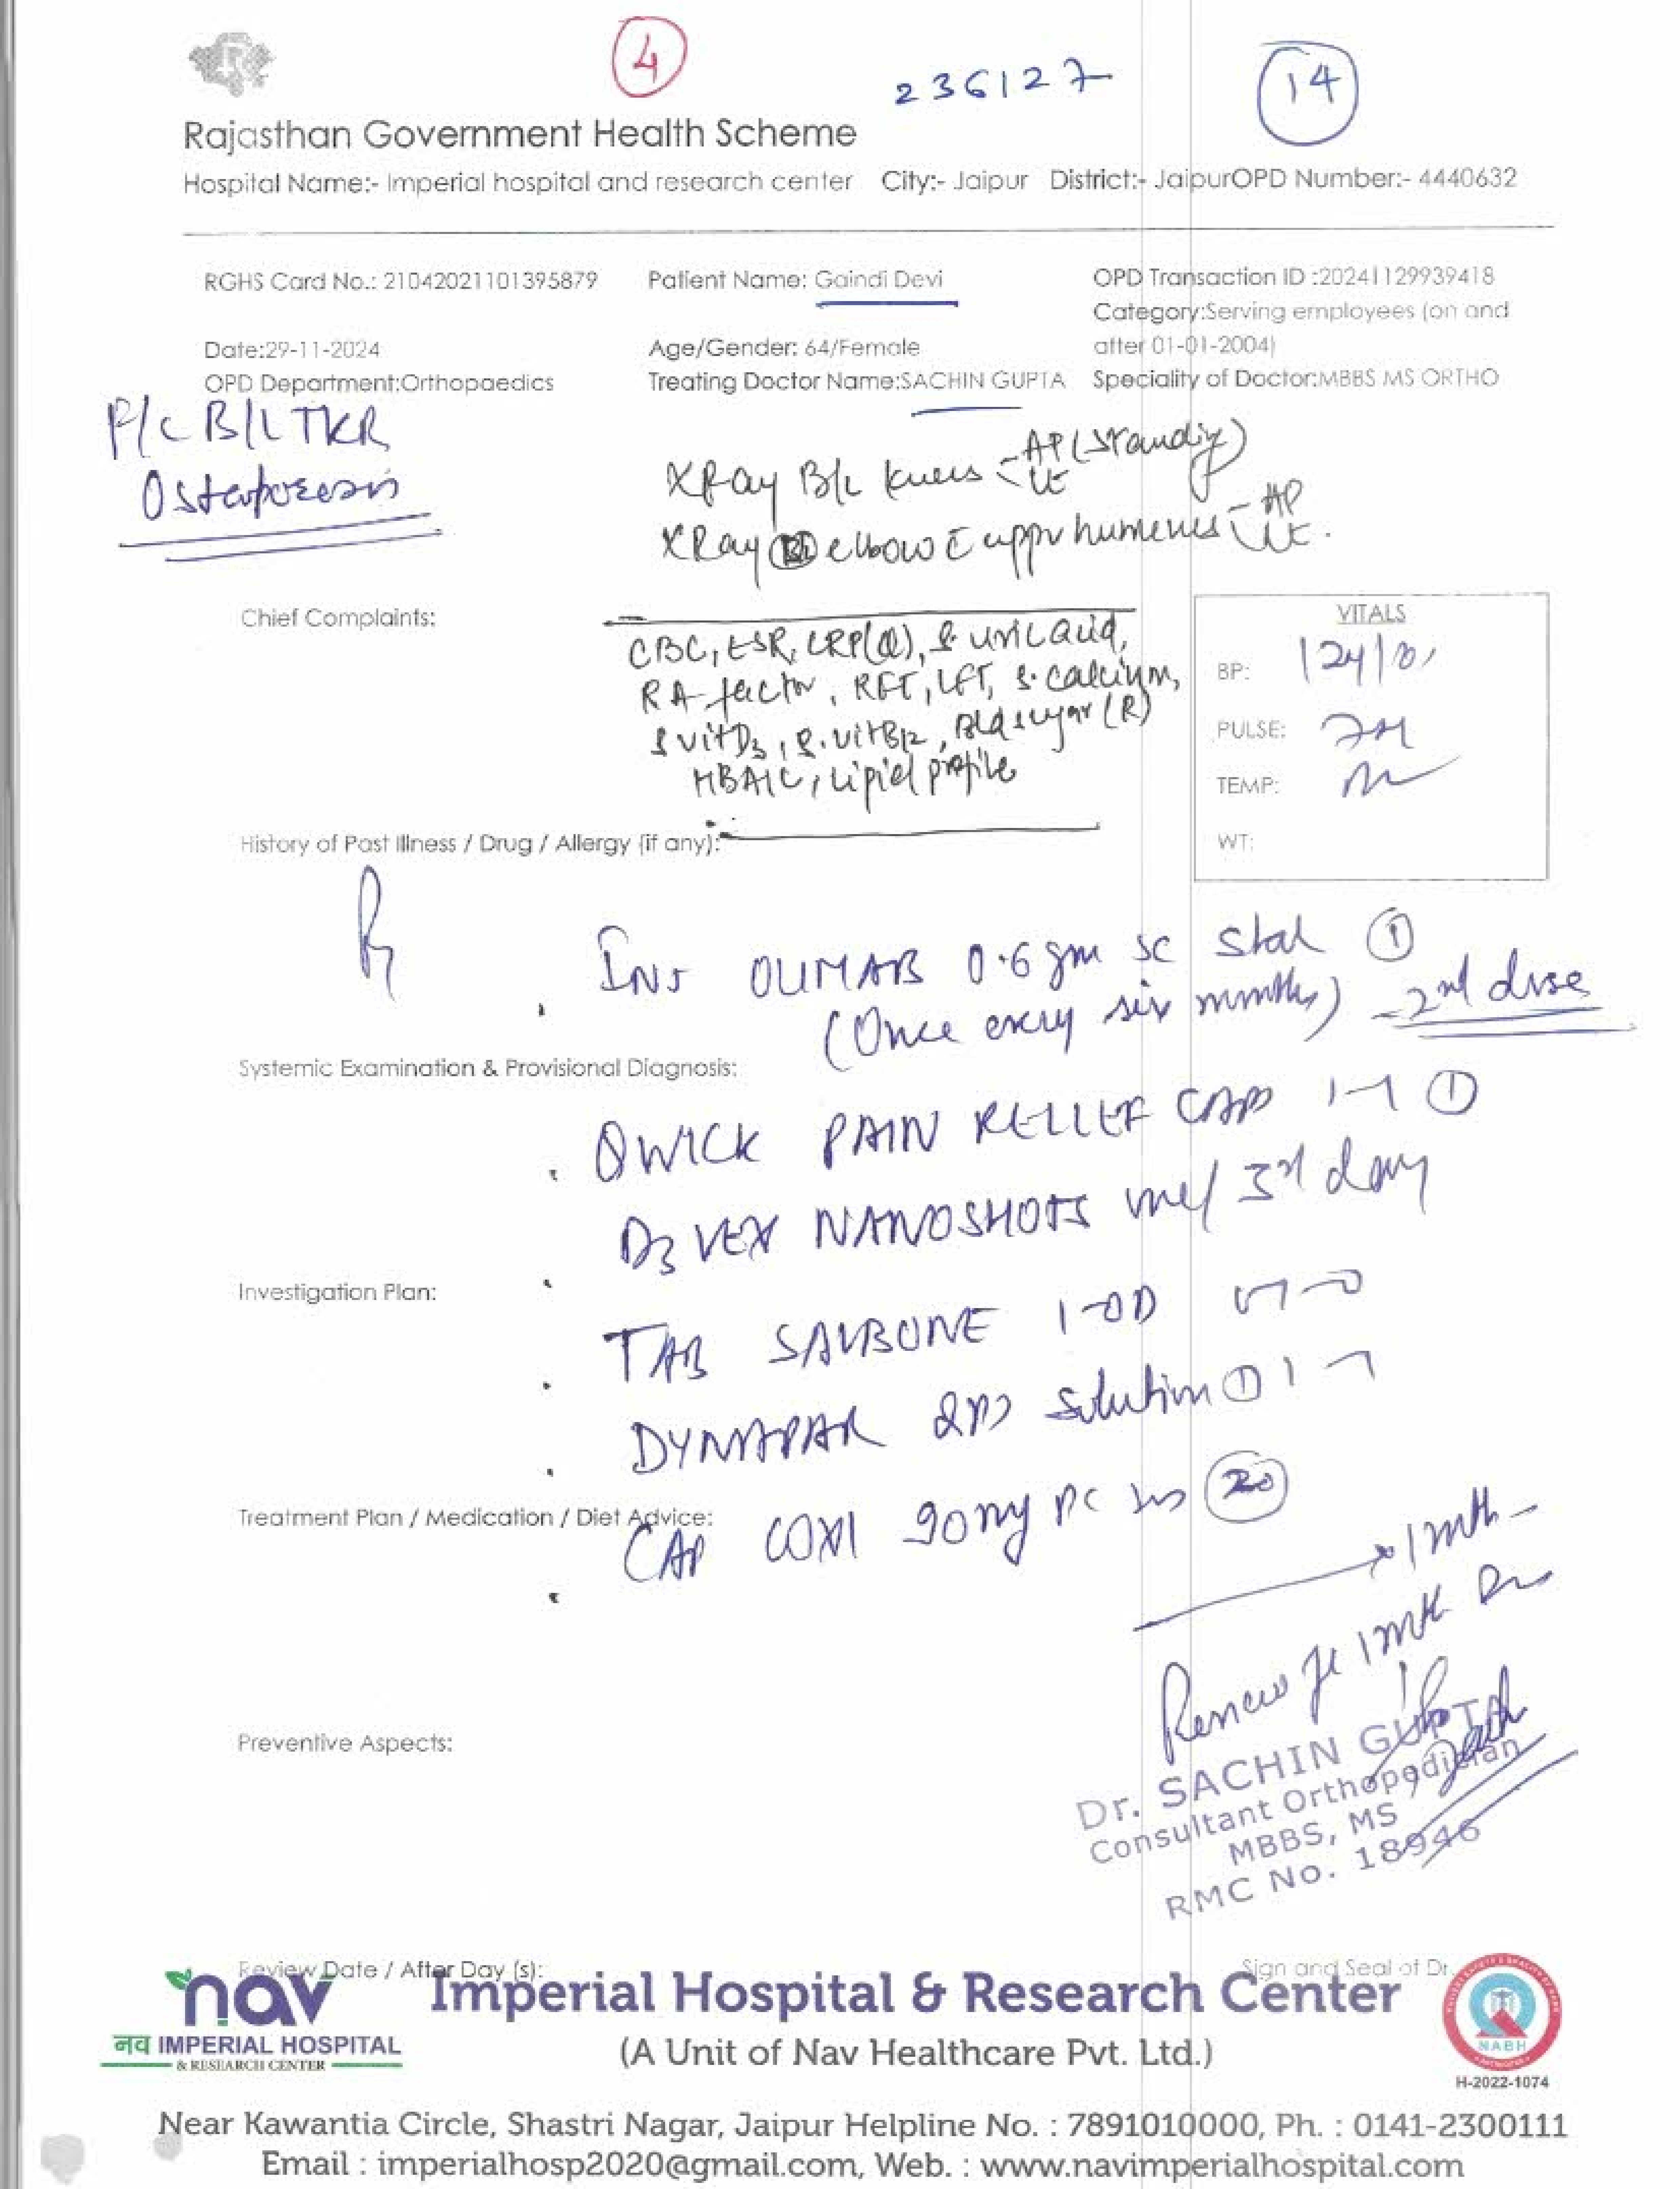 4
236127
14
Rajasthan Government Health Scheme
Hospital Name:- Imperial hospital and research center City:- Jaipur District:- JaipurOPD Number:- 4440632
RGHS Card No.: 21042021101395879 Patient Name: Gaindi Devi OPD Transaction ID :20241129939418
Category:Serving employees (on and
Date:29-11-2024 Age/Gender: 64/Female after 01-01-2004)
OPD Department:Orthopaedics Treating Doctor Name:SACHIN GUPTA Speciality of Doctor:MBBS MS ORTHO
P/C B/L TKR
XRay B/L knees AP (standing)
XRay elbow upper humerus - AP
Chief Complaints:
CBC, ESR, CRP(Q), S uric acid,
RA factor, RFT, LFT, S. calcium,
S vitD3, S. vitB12, Bld sugar (R)
HBA1C, Lipid profile
VITALS
BP: 124/
PULSE:
TEMP:
WT:
History of Past Illness / Drug / Allergy (if any):
INJ 0.6 gm SC stat 1
(Once every six months) - 2nd dose
Systemic Examination & Provisional Diagnosis:
QWICK PAIN RELIEF CAP 1-1 1
D3 VEX NANOSHOTS 3rd day
Investigation Plan:
TAB 1-OD
DYNAPAR solution 1
Treatment Plan / Medication / Diet Advice:
CAP COXI 90mg PC 20
1 mth
1 mth
Dr. SACHIN GUPTA
Consultant Orthopedician
MBBS, MS
RMC No. 18946
Preventive Aspects:
Review Date / After Day (s): Sign and Seal of Dr.
nav
नव IMPERIAL HOSPITAL
& RESEARCH CENTER
Imperial Hospital & Research Center
(A Unit of Nav Healthcare Pvt. Ltd.)
NABH
H-2022-1074
Near Kawantia Circle, Shastri Nagar, Jaipur Helpline No. : 7891010000, Ph. : 0141-2300111
Email : imperialhosp2020@gmail.com, Web. : www.navimperialhospital.com